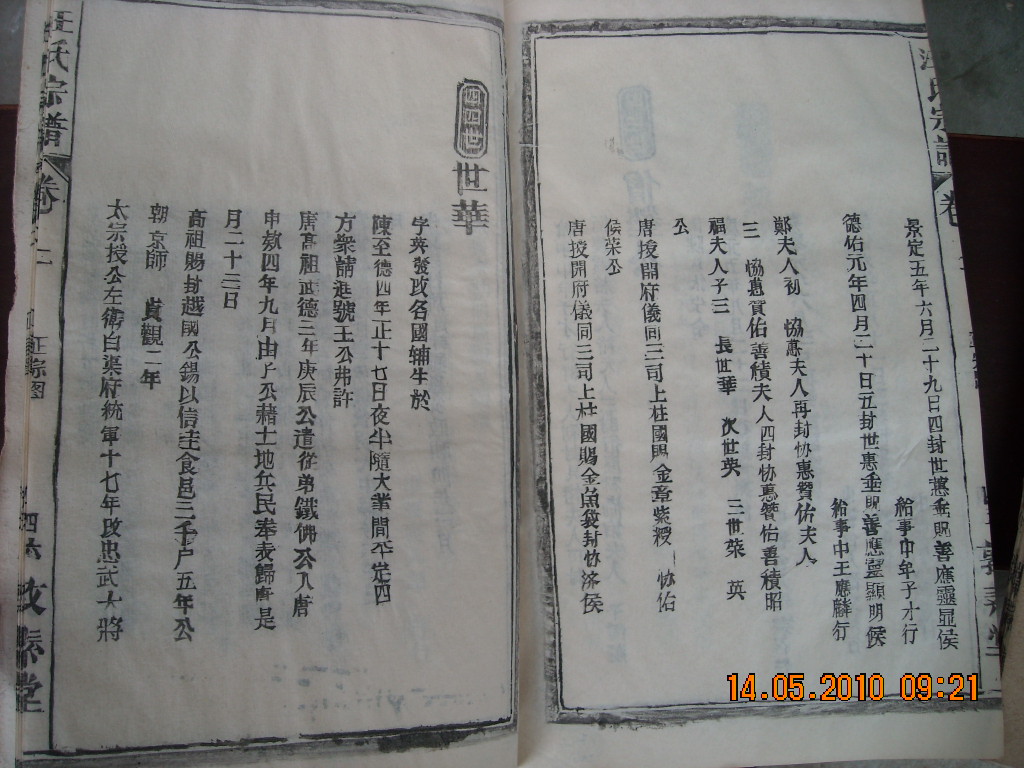 汪氏宗譜
卷
景定五年六月二十九日四封世惠垂貺善應靈显侯
給事中牟子才行
德佑元年四月二十日五封世惠垂貺善應靈顯明侯
給事中王應麟行
鄭夫人初 協惠夫人再封协惠贊佑夫人
三 協惠贊佑善積夫人四封协惠贊佑善積昭
福夫人子三 長世華 次世英 三世荣 英
公
唐授開府儀同三司上柱國賜金章紫綬 协佑
侯荣公
唐授開府儀同三司上柱國賜金魚袋封协济侯
四四世
世華
字英發改名國輔生於
陳至德四年正十七日夜半隨大業間平定四
方衆請進號王公弗許
唐高祖武德三年庚辰公遣從弟鐵佛公入唐
申款四年九月由子公藉土地兵民奉表歸唐是
月二十三日
高祖賜封越國公錫以信圭食邑三千户五年公
朝京師 貞觀二年
太宗授公左衛白渠府統軍十七年改忠武大將
汪氏宗譜
卷之二
正宗图
四六
敦睦堂
14.05.2010 09:21